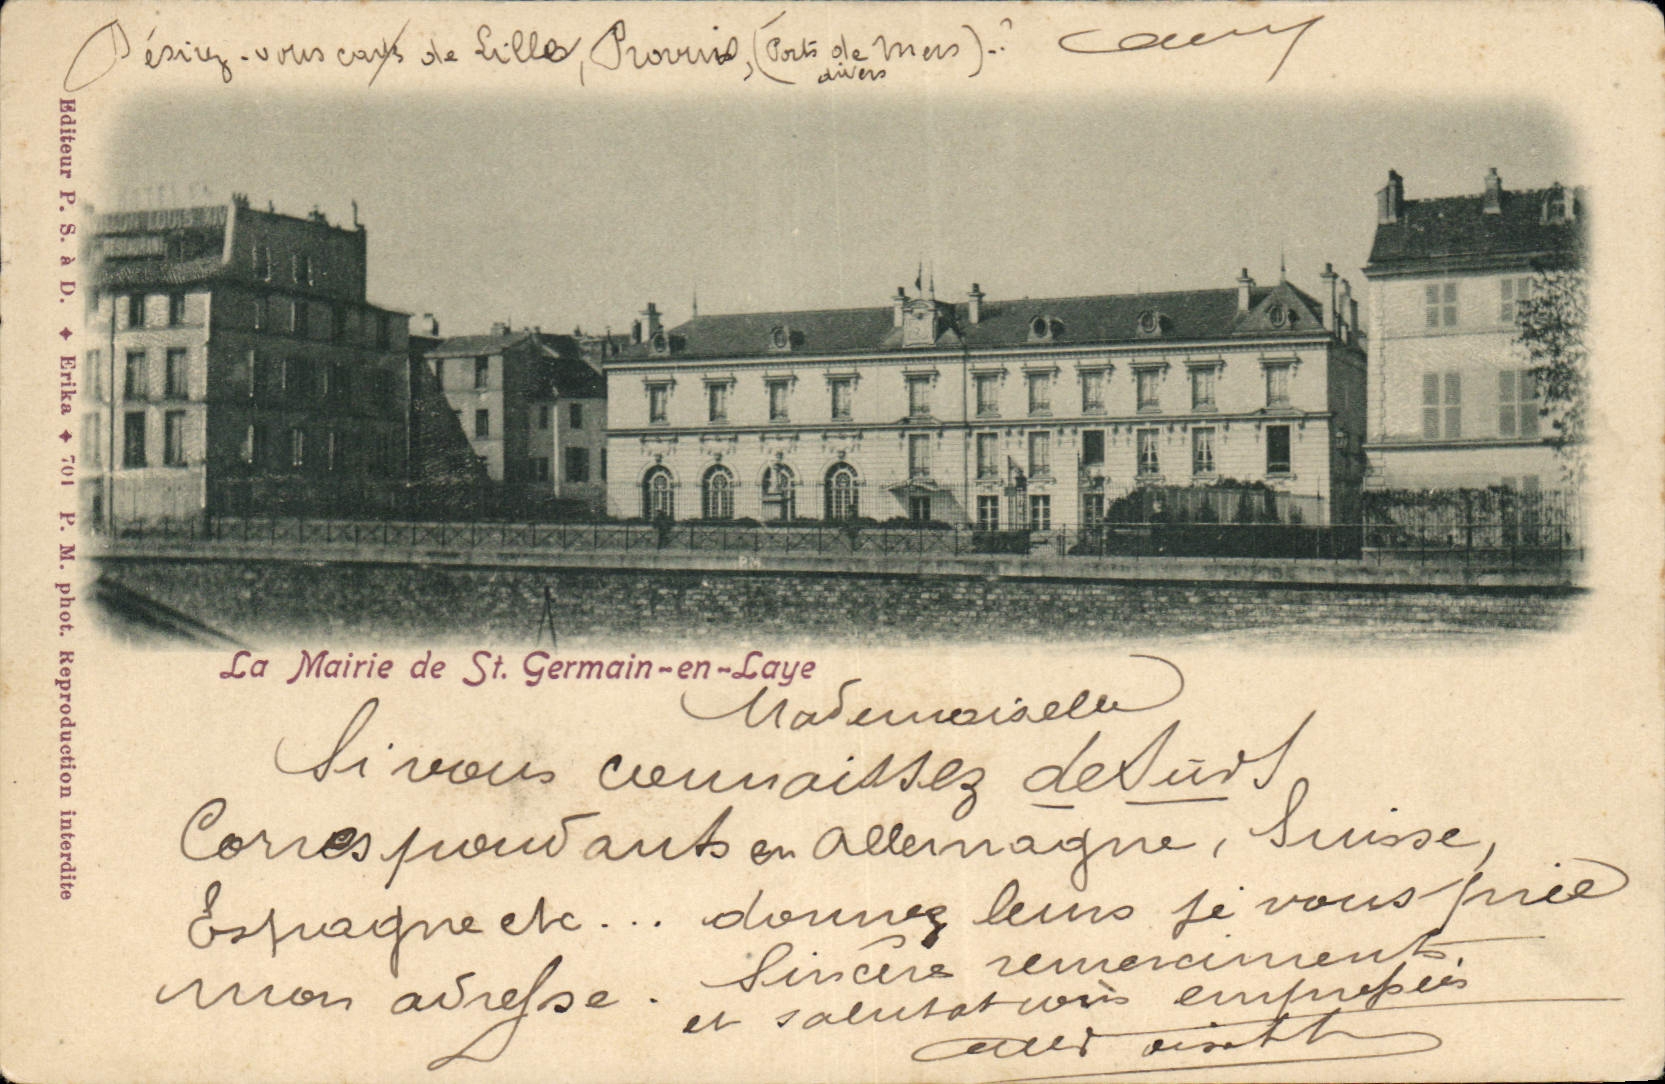 Désirez-vous cartes de Lille, Provins, (Ports de Mers) -?
divers
Editeur P. S. à D. ✦ Erika ✦ 701 P. M. phot. Reproduction interdite
La Mairie de St. Germain-en-Laye
Mademoiselle
Si vous connaissez de Surs
Correspondants en Allemagne, Suisse,
Espagne etc... donnez leurs je vous prie
mon adresse. Sincère remerciments
et salutations empressées